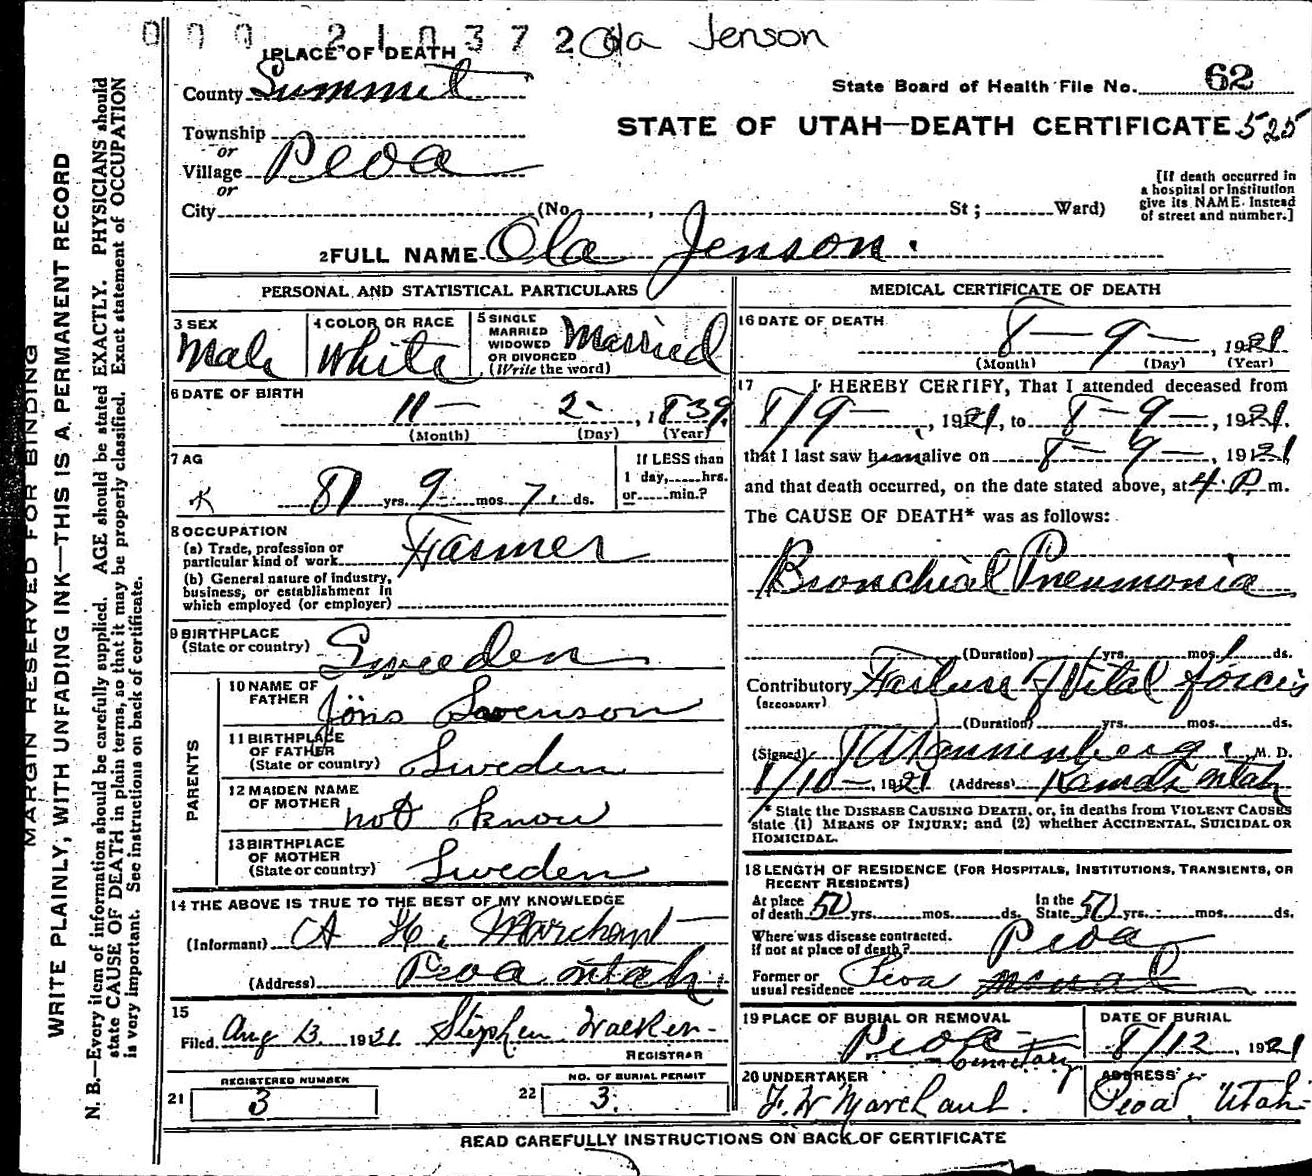 009 210372 Ola Jenson
1 PLACE OF DEATH
County Summit
State Board of Health File No. 62
Township
or
Village Peoa
or
STATE OF UTAH—DEATH CERTIFICATE 525
City (No. , St; Ward)
[If death occurred in
a hospital or institution
give its NAME. Instead
of street and number.]
2 FULL NAME Ola Jenson.
PERSONAL AND STATISTICAL PARTICULARS
3 SEX Male
4 COLOR OR RACE White
5 SINGLE
MARRIED
WIDOWED
OR DIVORCED
(Write the word) Married
6 DATE OF BIRTH 11— 2- , 1839
(Month) (Day) (Year)
7 AG
81 yrs. 9 mos. 7 ds.
If LESS than
1 day,......hrs.
or......min.?
8 OCCUPATION
(a) Trade, profession or
particular kind of work Farmer
(b) General nature of industry,
business, or establishment in
which employed (or employer)
9 BIRTHPLACE
(State or country) Sweden
PARENTS
10 NAME OF
FATHER Jöns Swenson
11 BIRTHPLACE
OF FATHER
(State or country) Sweden
12 MAIDEN NAME
OF MOTHER not know
13 BIRTHPLACE
OF MOTHER
(State or country) Sweden
14 THE ABOVE IS TRUE TO THE BEST OF MY KNOWLEDGE
(Informant) A H. Marchant
(Address) Peoa Utah.
15
Filed Aug 13 1921 Stephen Walker
REGISTRAR
21 REGISTERED NUMBER
3
22 NO. OF BURIAL PERMIT
3.
MEDICAL CERTIFICATE OF DEATH
16 DATE OF DEATH 8— 9— , 1921
(Month) (Day) (Year)
17 I HEREBY CERTIFY, That I attended deceased from
8/9— , 1921, to 8—9—, 1921.
that I last saw him alive on 8— 9—, 1921,
and that death occurred, on the date stated above, at 4. P. m.
The CAUSE OF DEATH* was as follows:
Bronchial Pneumonia
(Duration) yrs. mos. 1 ds.
Contributory Failure of Vital forces
(SECONDARY)
(Duration) yrs. mos. ds.
(Signed) Wannenberg. M. D.
8/10—, 1921 (Address) Kamas Utah
* State the DISEASE CAUSING DEATH, or, in deaths from VIOLENT CAUSES
state (1) MEANS OF INJURY; and (2) whether ACCIDENTAL, SUICIDAL OR
HOMICIDAL.
18 LENGTH OF RESIDENCE (FOR HOSPITALS, INSTITUTIONS, TRANSIENTS, OR
RECENT RESIDENTS)
At place
of death 50 yrs. mos. ds.
In the
State 50 yrs. mos. ds.
Where was disease contracted.
If not at place of death? Peoa
Former or
usual residence Peoa
19 PLACE OF BURIAL OR REMOVAL
Peoa Cemetary
DATE OF BURIAL
8/12, 1921
20 UNDERTAKER
F. W Marchant.
ADDRESS
Peoa, Utah
READ CAREFULLY INSTRUCTIONS ON BACK OF CERTIFICATE
MARGIN RESERVED FOR BINDING
WRITE PLAINLY, WITH UNFADING INK—THIS IS A PERMANENT RECORD
N. B.—Every item of information should be carefully supplied. AGE should be stated EXACTLY. PHYSICIANS should
state CAUSE OF DEATH in plain terms, so that it may be properly classified. Exact statement of OCCUPATION
is very important. See instructions on back of certificate.